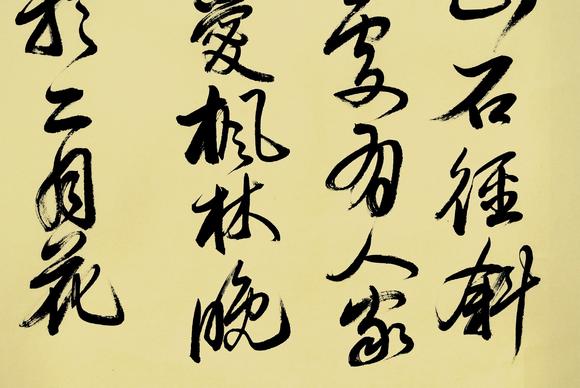 山石徑斜
處有人家
愛楓林晚
於二月花